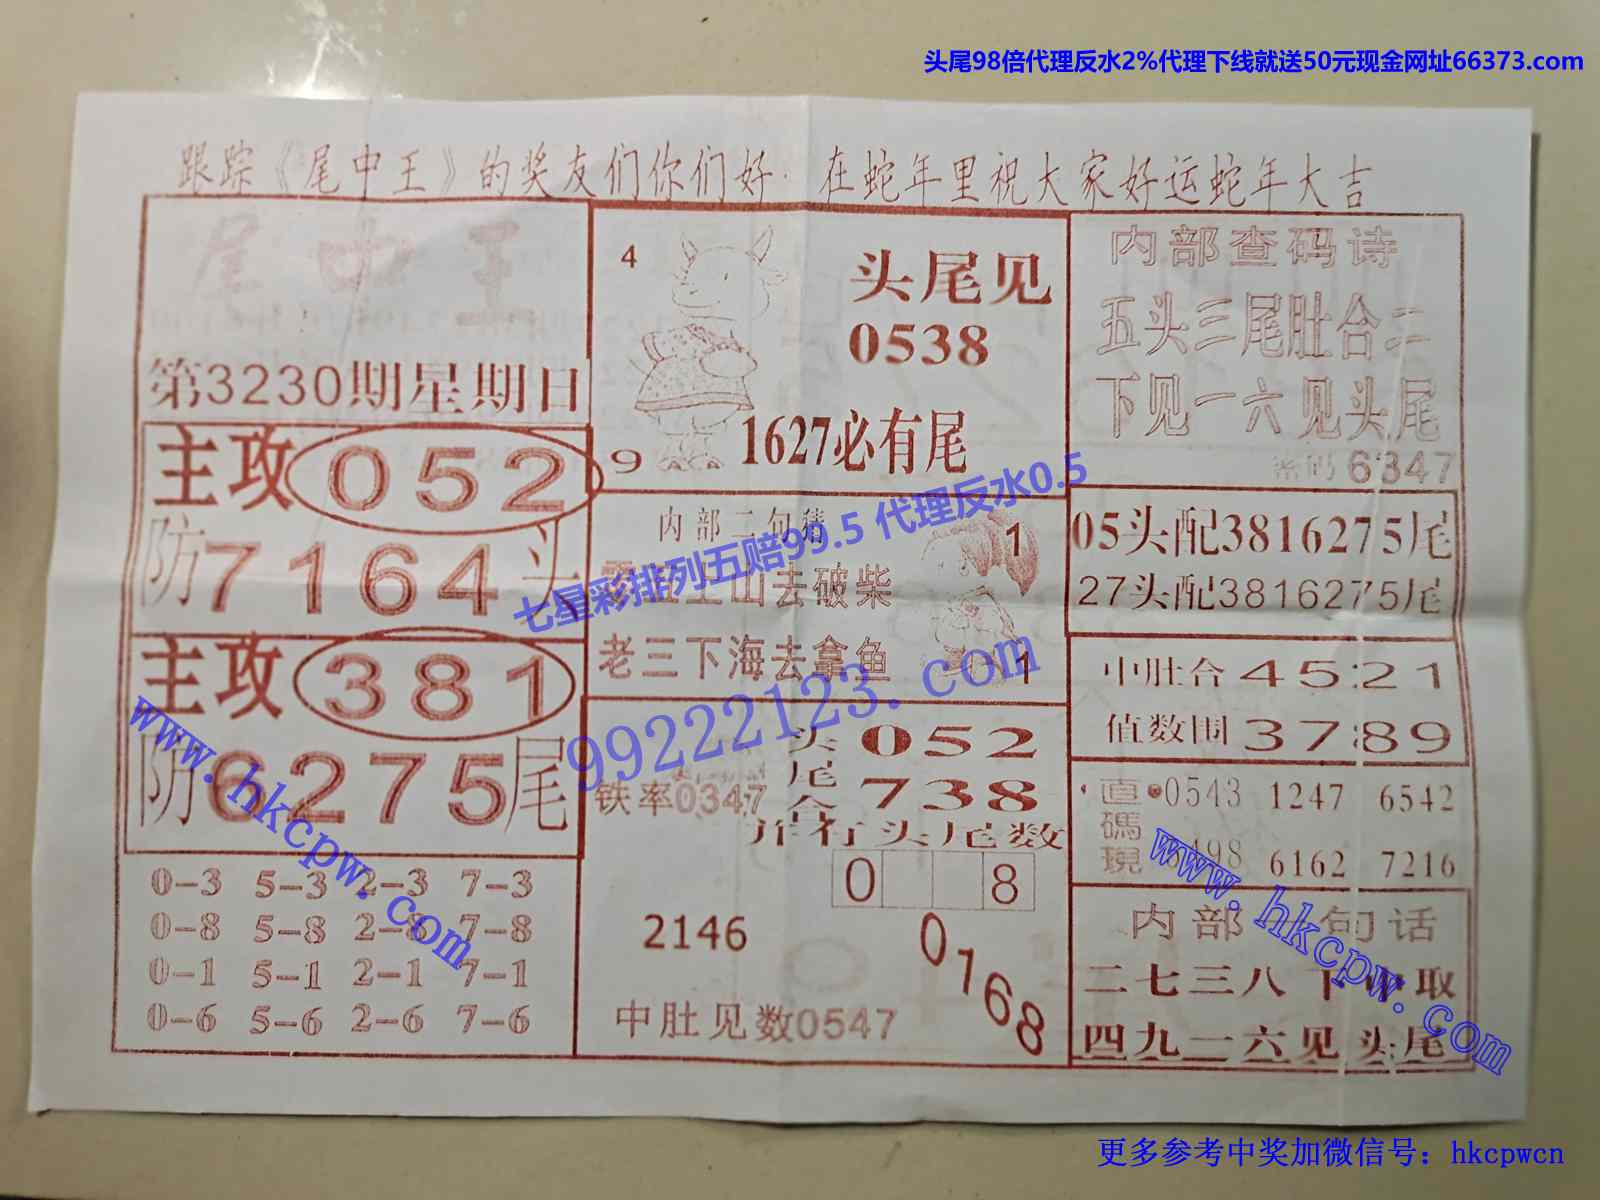 头尾98倍代理反水2%代理下线就送50元现金网址66373.com
跟踪《尾中王》的奖友们你们好：在蛇年里祝大家好运蛇年大吉
尾中王
第3230期星期日
主攻052
防7164头
主攻381
防6275尾
0-3 5-3 2-3 7-3
0-8 5-8 2-8 7-8
0-1 5-1 2-1 7-1
0-6 5-6 2-6 7-6
4
头尾见
0538
1627必有尾
9
内部二句猜
1
上山去破柴
老三下海去拿鱼
1
七星彩排列五赔99.5 代理反水0.5
99222123.com
头 052
尾
合 738
铁率0347
并行头尾数
0 8
2146
0168
中肚见数0547
内部查码诗
五头三尾肚合二
下见一六见头尾
密码6347
05头配3816275尾
27头配3816275尾
中肚合4521
值数围37:89
直碼現
0543 1247 6542
6498 6162 7216
内部 句话
二七三八下中取
四九一六见头尾
www.hkcpw.com
www.hkcpw.com
更多参考中奖加微信号：hkcpwcn